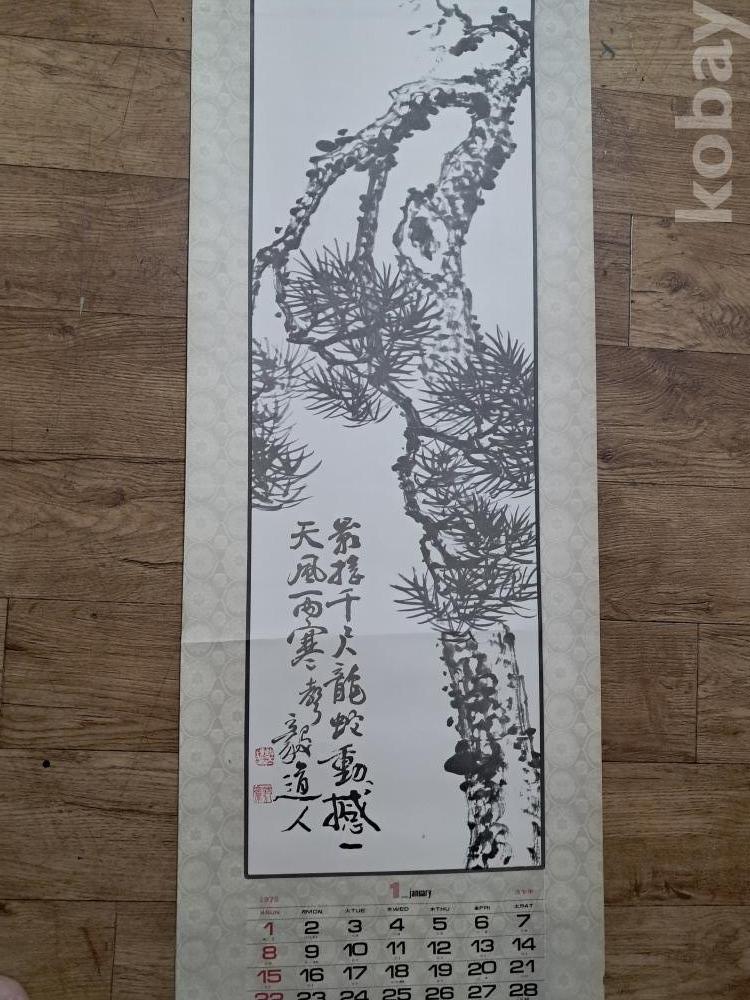 影搖千尺龍蛇動撼一
天風雨寒聲
毅道人
1978
1 january
日SUN 月MON 火TUE 水WED 木THU 金FRI 土SAT
1 2 3 4 5 6 7
8 9 10 11 12 13 14
15 16 17 18 19 20 21
22 23 24 25 26 27 28
kobay